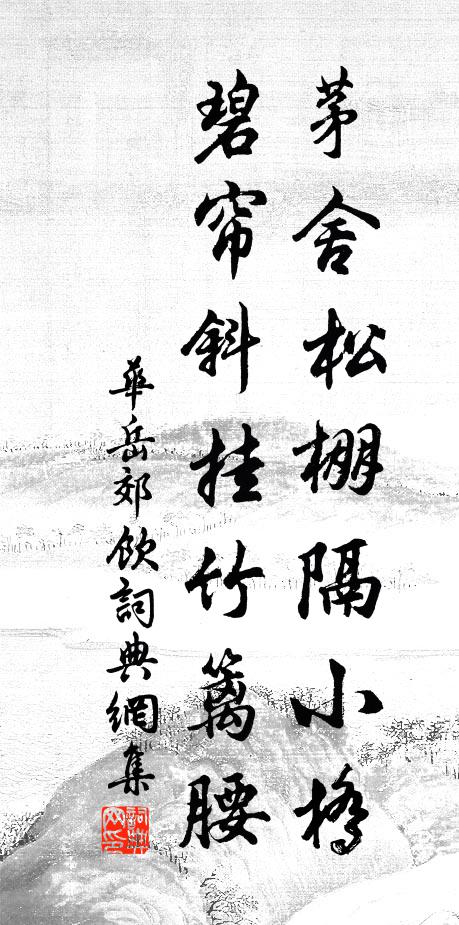 茅舍松棚隔小橋
碧帘斜挂竹篱腰
華岳郊飲詞典網集